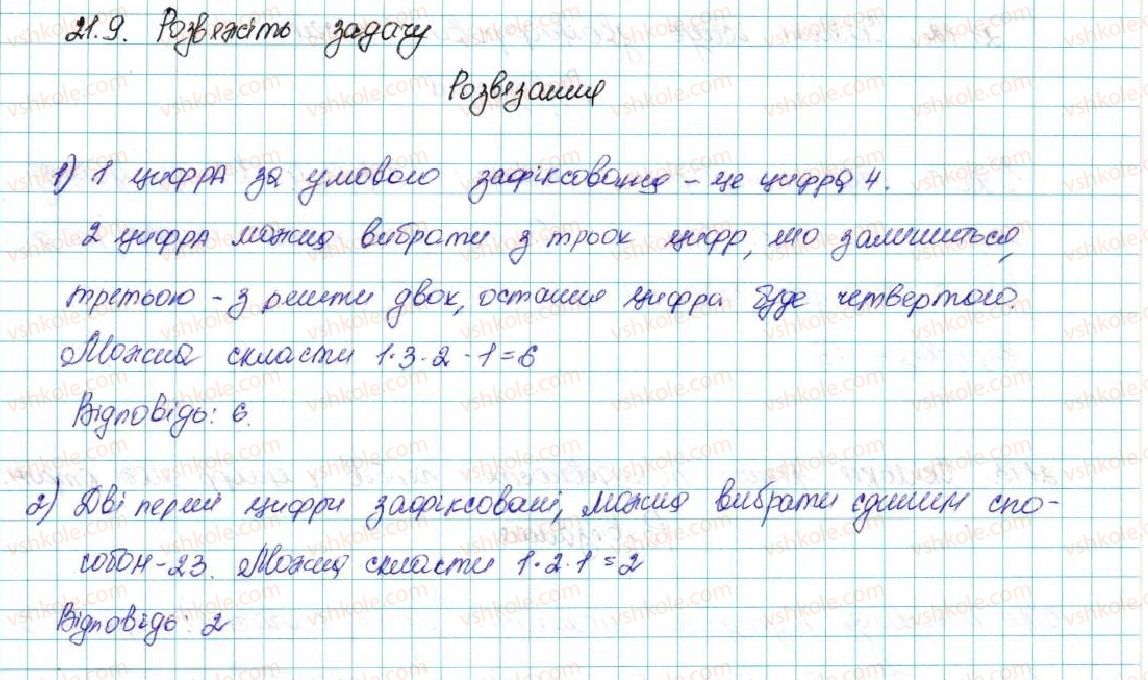 21.9. Розвяжіть задачу
Розвязання
1) 1 цифра за умовою зафіксована - це цифра 4.
2 цифра можна вибрати з трьох цифр, що залишиться,
третьою - з решти двох, остання цифра буде четвертою.
Можна скласти 1·3·2·1=6
Відповідь: 6.
2) Дві перші цифри зафіксовані, можна вибрати єдиним спо-
собом-23. Можна скласти 1·2·1=2
Відповідь: 2